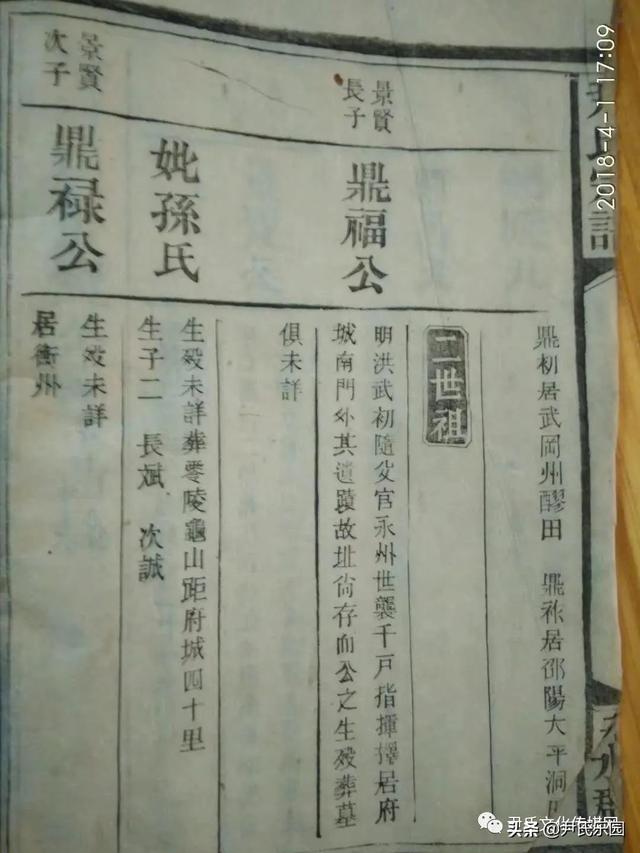 尹氏家譜
鼎初居武岡州醪田　鼎祚居邵陽大平洞
二世祖
景賢長子
鼎福公
明洪武初隨父官永州世襲千戸指揮擇居府
城南門外其遺蹟故址尙存而公之生殁葬墓
俱未詳
妣孫氏
生殁未詳葬零陵龜山距府城四十里
生子二　長斌　次誠
景賢次子
鼎祿公
生殁未詳
居衡州
2018-4-1 17:09
尹氏文化传媒网
头条@尹氏乐园